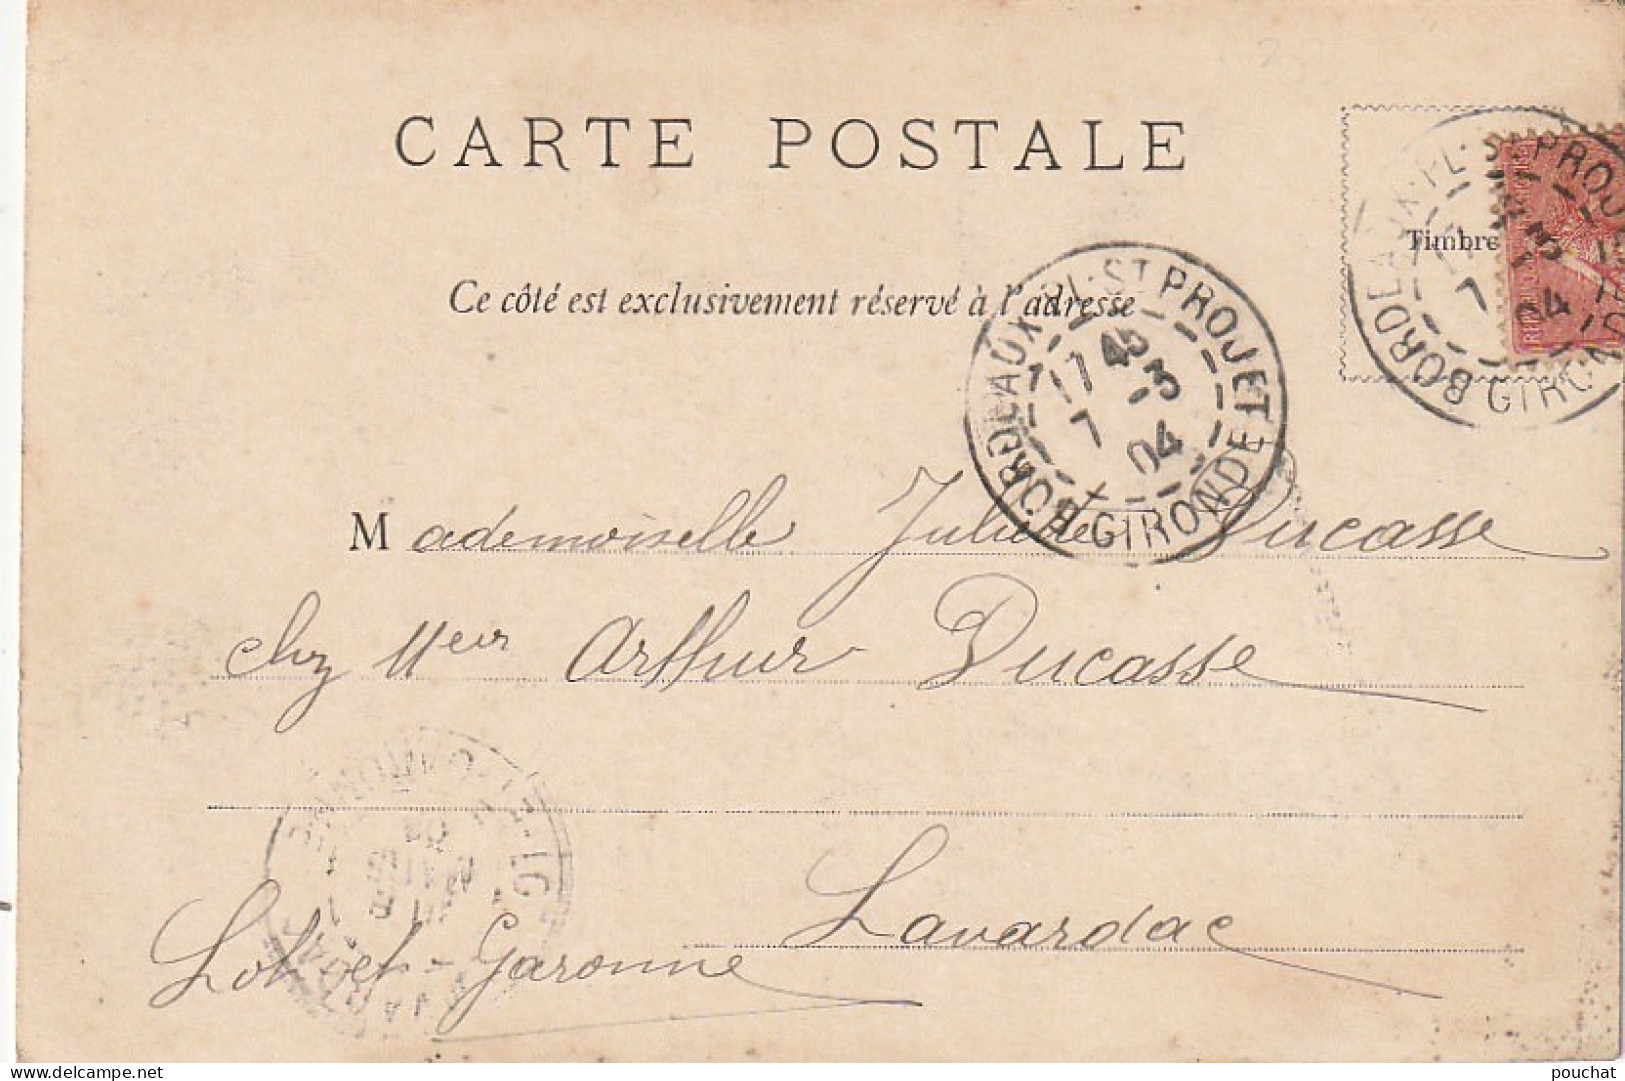 CARTE POSTALE
Timbre
Ce côté est exclusivement réservé à l'adresse
BORDEAUX-PL. ST PROJET
17 45
7 -3
04
GIRONDE
BORDEAUX-PL. ST PROJET
7 3
04
GIRONDE
Mademoiselle Juliette Ducasse
chez Meur Arthur Ducasse
Lavardac
Lot et Garonne
pouchat